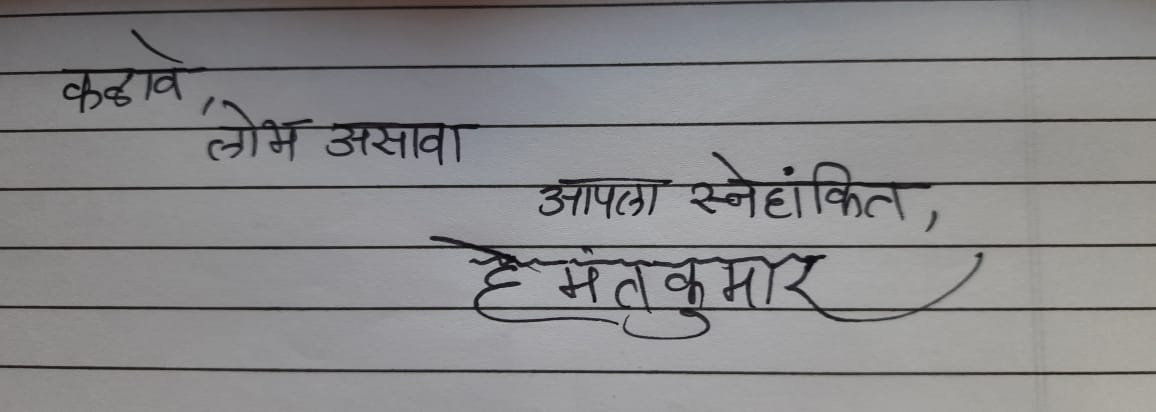 कळावे,
लोभ असावा
आपला स्नेहांकित,
हेमंतकुमार